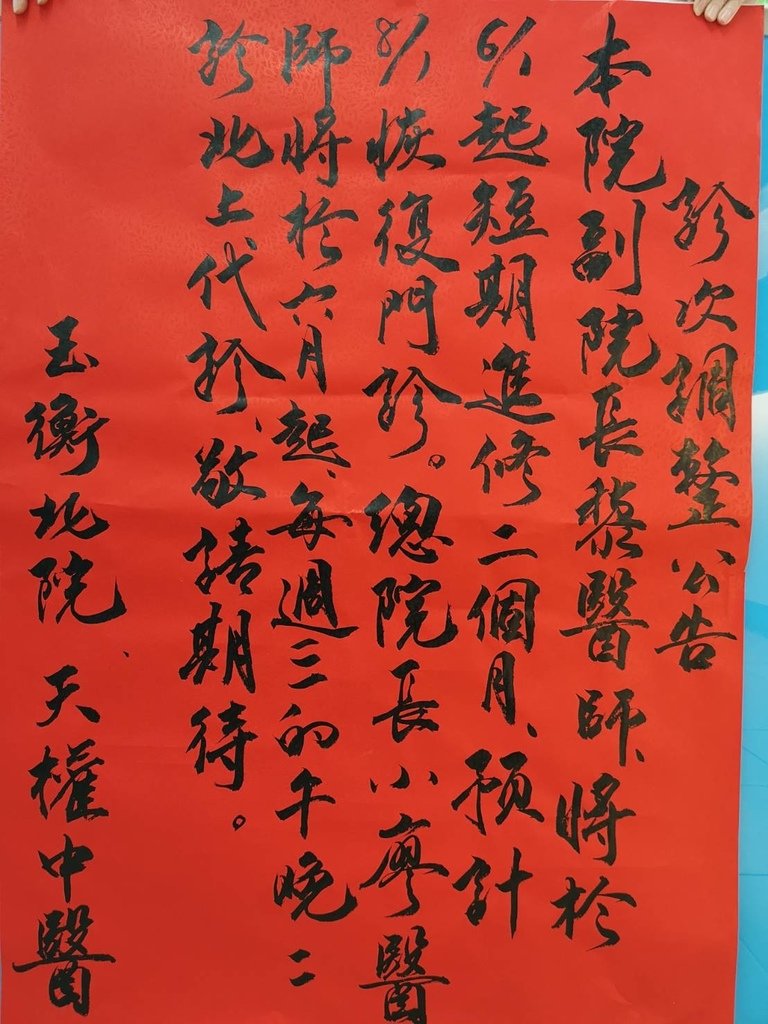 診次調整公告
本院副院長黎醫師、將於
6/1起短期進修二個月、預計
8/1恢復門診。總院長小廖醫
師將於六月起、每週三的午晚二
診北上代診、敬請期待。
玉衡北院、天權中醫